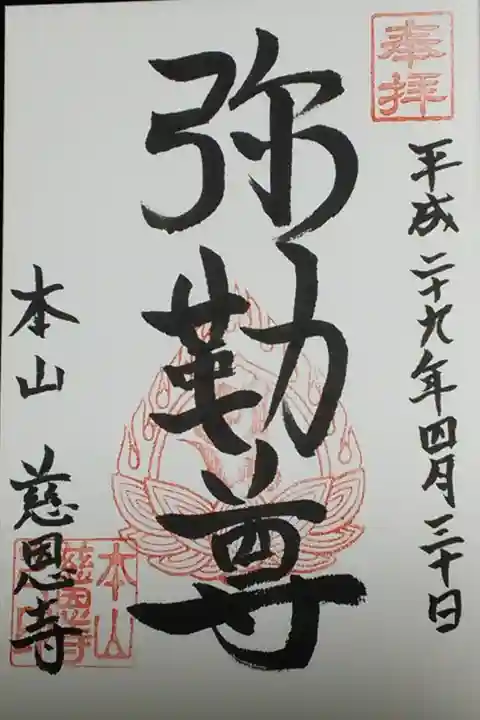 奉拝
平成二十九年四月三十日
弥勒尊
本山 慈恩寺
本山
慈恩寺